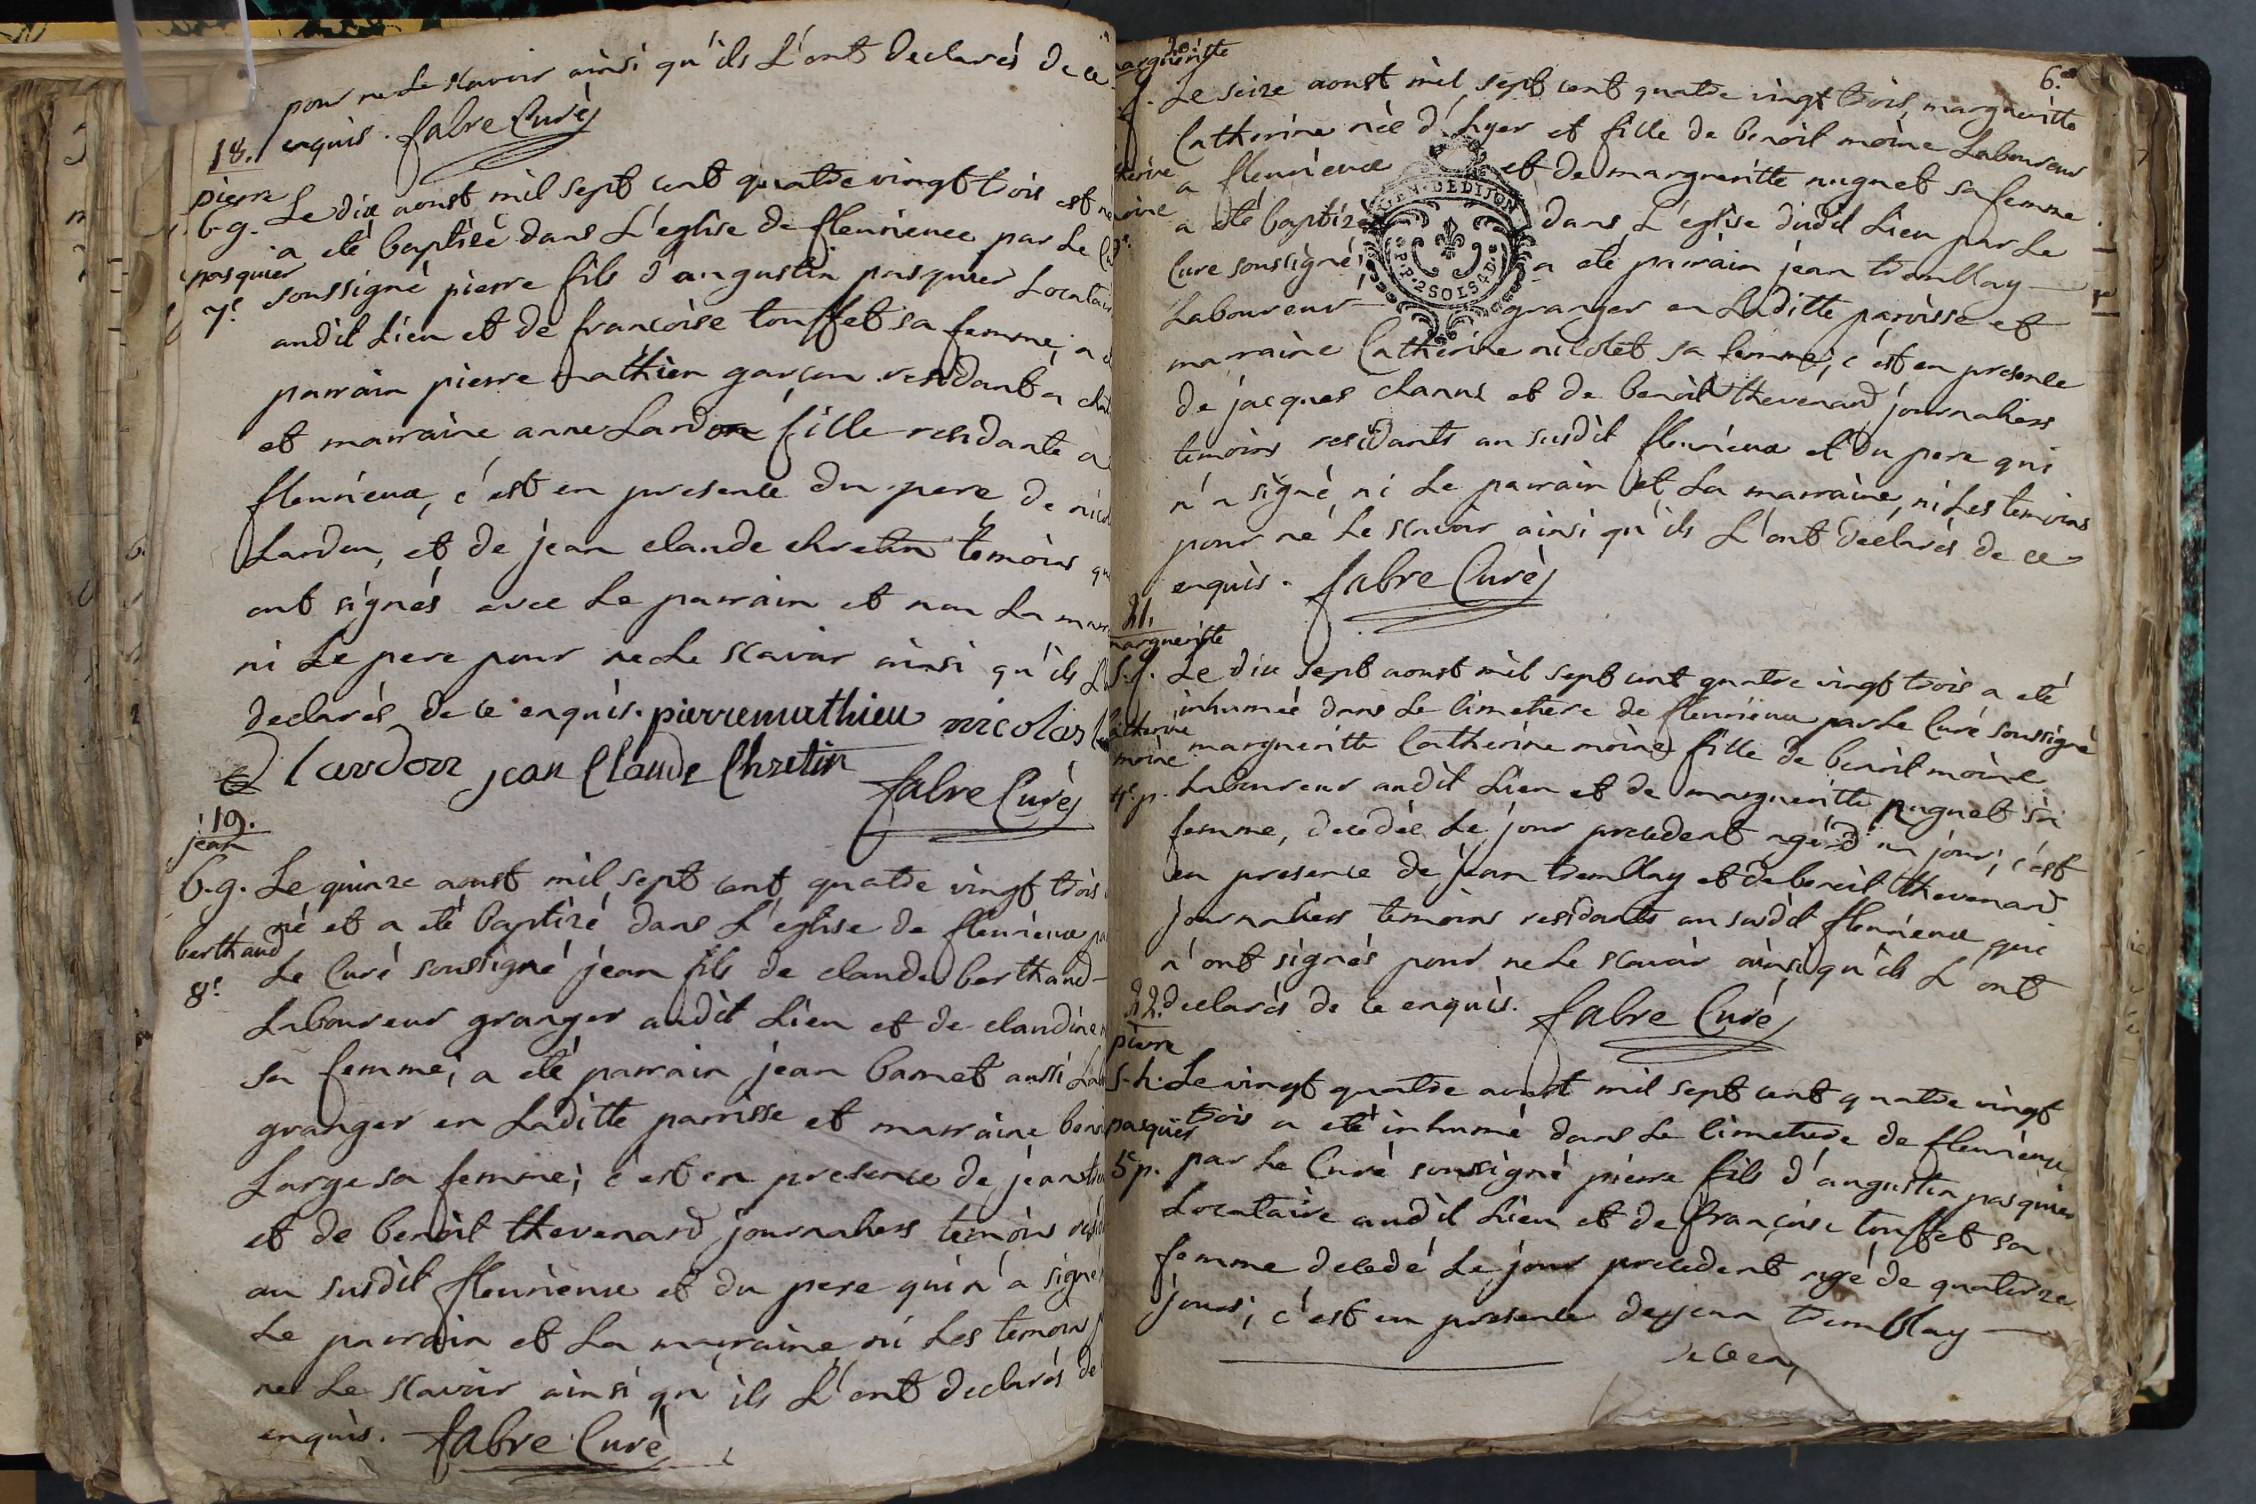 pour ne le scavoir ainsi qu'ils l'ont declarés de ce
enquis. fabre Curé
18.
pierre
b.g.
pasquier
7e
Le dix aoust mil sept cent quatre vingt trois est
a eté baptisé dans l'eglise de fleurieux par le
soussigné pierre fils d'augustin pasquier Locataire
audit Lieu et de francoise touffet sa femme, a
parrain pierre mathieu garçon residant a
et marraine anne Lardon fille residante a
fleurieux, c'est en presence du pere, de
Lardon, et de jean claude chretin temoins
ont signés avec le parrain et non la
ni le pere pour ne le scavoir ainsi qu'ils
declarés de ce enquis. pierre mathieu nicolas
lardon jean Claude Chretin
fabre Curé
19.
jean
b.g.
berthaud
8e
Le quinze aoust mil sept cent quatre vingt trois
né et a eté baptizé dans l'eglise de fleurieux
Le Curé soussigné jean fils de claude berthaud
Laboureur granger audit Lieu et de claudine
sa femme, a eté parrain jean bamet aussi
granger en laditte parrisse et marraine
Large sa femme; c'est en presence de jean
et de benoit thevenard journaliers temoins
au susdit fleurieux et du pere qui n'a signé
Le parrain et la marraine ni les temoins
ne le scavoir ainsi qu'ils l'ont declarés de
enquis. fabre Curé
6e
20.
margueritte
Le seize aoust mil sept cent quatre vingt trois, margueritte
Catherine née d'hyer et fille de benoit moine Laboureur
a fleurieux et de margueritte nuguet sa femme
a eté baptizée dans l'eglise dudit Lieu par le
Curé soussigné, a eté parrain jean tremblay
Laboureur granger en laditte parrisse et
marraine Catherine nicolet sa femme; c'est en presence
de jacques chanus et de benoit thevenard journaliers
temoins residants au susdit fleurieux et du pere qui
n'a signé ni le parrain et la marraine, ni les temoins
pour ne le scavoir ainsi qu'ils l'ont declarés de ce
enquis. fabre Curé
GEN. DE DIJON
P.P. 2 SOLS 4 D.
21.
margueritte
s.f.
catherine
moine
4e p.
Le dix sept aoust mil sept cent quatre vingt trois a eté
inhumée dans le cimetiere de fleurieux par le Curé soussigné
margueritte Catherine moine fille de benoit moine
Laboureur audit Lieu et de margueritte nuguet sa
femme, decedée le jour precedent agée d'un jour; c'est
en presence de jean tremblay et de benoit thevenard
journaliers temoins residants au susdit fleurieux qui
n'ont signés pour ne le scavoir ainsi qu'ils l'ont
declarés de ce enquis. fabre Curé
22.
pierre
s.h.
pasquier
5e p.
Le vingt quatre aoust mil sept cent quatre vingt
trois a eté inhumé dans le cimetiere de fleurieux
par le Curé soussigné pierre fils d'augustin pasquier
Locataire audit Lieu et de françoise touffet sa
femme decedé le jour precedent agé de quatorze
jours; c'est en presence de jean tremblay